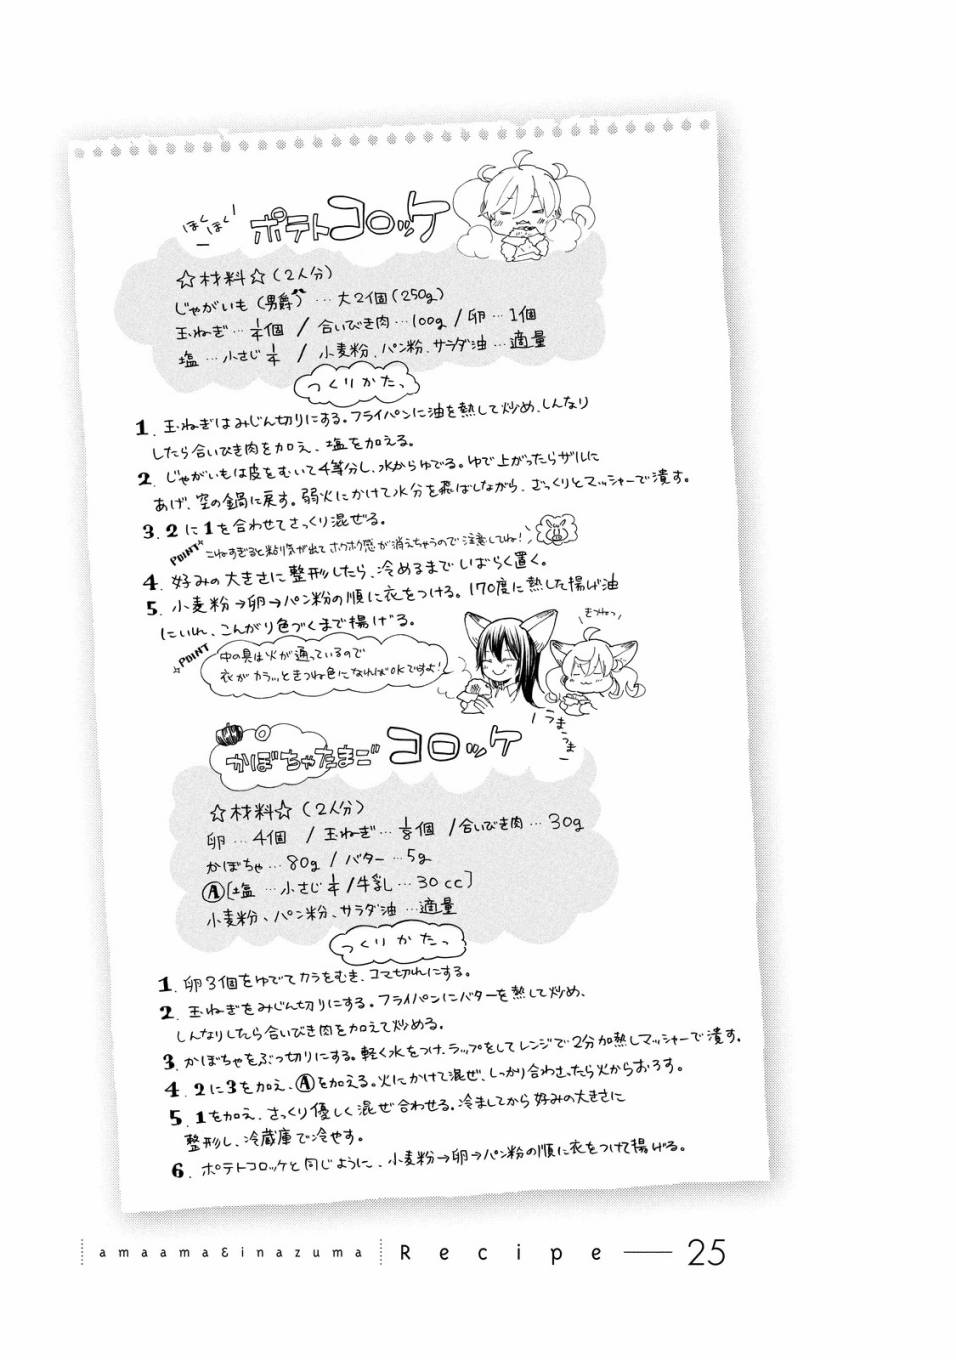 ほくほく！
ポテトコロッケ
☆材料☆（2人分）
じゃがいも（男爵）…大2個（250g）
玉ねぎ…1/4個 / 合いびき肉…100g / 卵…1個
塩…小さじ1/4 / 小麦粉、パン粉、サラダ油…適量
つくりかた、
1. 玉ねぎはみじん切りにする。フライパンに油を熱して炒め、しんなり
したら合いびき肉を加え、塩を加える。
2. じゃがいもは皮をむいて4等分し、水からゆでる。ゆで上がったらザルに
あげ、空の鍋に戻す。弱火にかけて水分を飛ばしながら、ざっくりとマッシャーで潰す。
3. 2に1を合わせてさっくり混ぜる。
POINT こねすぎると粘り気が出てホクホク感が消えちゃうので注意してね！
4. 好みの大きさに整形したら、冷めるまでしばらく置く。
5. 小麦粉→卵→パン粉の順に衣をつける。170度に熱した揚げ油
にいれ、こんがり色づくまで揚げる。
POINT
中の具は火が通っているので
衣がカラッときつね色になればOKですよ！
きつねっ
うまうま
かぼちゃたまごコロッケ
☆材料☆（2人分）
卵…4個 / 玉ねぎ…1/8個 / 合いびき肉…30g
かぼちゃ…80g / バター…5g
Ⓐ[塩…小さじ1/4 / 牛乳…30cc]
小麦粉、パン粉、サラダ油…適量
つくりかたっ
1. 卵3個をゆでてカラをむき、コマ切れにする。
2. 玉ねぎをみじん切りにする。フライパンにバターを熱して炒め、
しんなりしたら合いびき肉を加えて炒める。
3. かぼちゃをぶつ切りにする。軽く水をつけ、ラップをしてレンジで2分加熱しマッシャーで潰す。
4. 2に3を加え、Ⓐを加える。火にかけて混ぜ、しっかり合わさったら火からおろす。
5. 1を加え、さっくり優しく混ぜ合わせる。冷ましてから好みの大きさに
整形し、冷蔵庫で冷やす。
6. ポテトコロッケと同じように、小麦粉→卵→パン粉の順に衣をつけて揚げる。
amaama&inazuma Recipe — 25